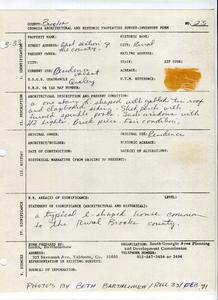 COUNTY: Brooks NO. 23
GEORGIA ARCHITECTURAL AND HISTORIC PROPERTIES SURVEY-INVENTORY FORM
PROPERTY NAME: HISTORIC NAME:
STREET ADDRESS: East section of the county. CITY: Rural
OWNER: MAILING ADDRESS:
CITY: STATE: ZIP CODE:
CURRENT USE: Residence vacant ACREAGE:
U.S.G.S. QUADRANGLE: Quitman U.T.M. REFERENCE:
TAX OR TAX MAP NUMBER:
ARCHITECTURAL DESCRIPTION AND PRESENT CONDITION:
a one story L-shaped with gabled tin roof
and clapboard siding. Shed porch with
turned spindle posts. Sash windows with
2/2 lights. Brick piers. Fair condition.
ORIGINAL OWNER: ORIGINAL USE: Residence
ARCHITECT: SOURCE:
HISTORICAL NARRATIVE (FROM HISTORY TO PRESENT):
N.R. AREA(S) OF SIGNIFICANCE:
STATEMENT OF SIGNIFICANCE (ARCHITECTURAL AND HISTORICAL):
a typical L-shaped house common
to the rural Brooks county.
FORM PREPARED BY: ORGANIZATION: South Georgia Area Planning
and Development Commission
ADDRESS: 327 Savannah Ave. Valdosta, GA 31601
REPRESENTATIVE OF EXISTING SURVEYS:
SOURCES OF INFORMATION:
PHOTO'S BY BETH BARTHELMEW / ROLL 33 / FEB 91